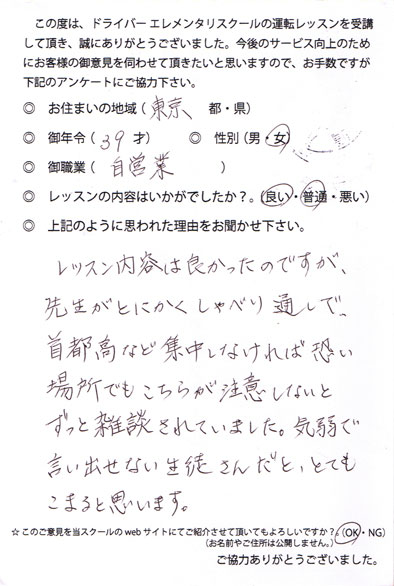 この度は、ドライバー エレメンタリスクールの運転レッスンを受講
して頂き、誠にありがとうございました。今後のサービス向上のため
にお客様の御意見を伺わせて頂きたいと思いますので、お手数ですが
下記のアンケートにご協力下さい。
◎ お住まいの地域（東京 都・県）
◎ 御年令（39 才） ◎ 性別（男・女）
◎ 御職業（自営業 ）
◎ レッスンの内容はいかがでしたか？。（良い・普通・悪い）
◎ 上記のように思われた理由をお聞かせ下さい。
レッスン内容は良かったのですが、
先生がとにかくしゃべり通しで、
首都高など集中しなければ恐い
場所でもこちらが注意しないと
ずっと雑談されていました。気弱で
言い出せない生徒さんだと、とても
こまると思います。
☆このご意見を当スクールの web サイトにてご紹介させて頂いてもよろしいですか？。（OK・NG）
（お名前やご住所は公開しません。）
ご協力ありがとうございました。